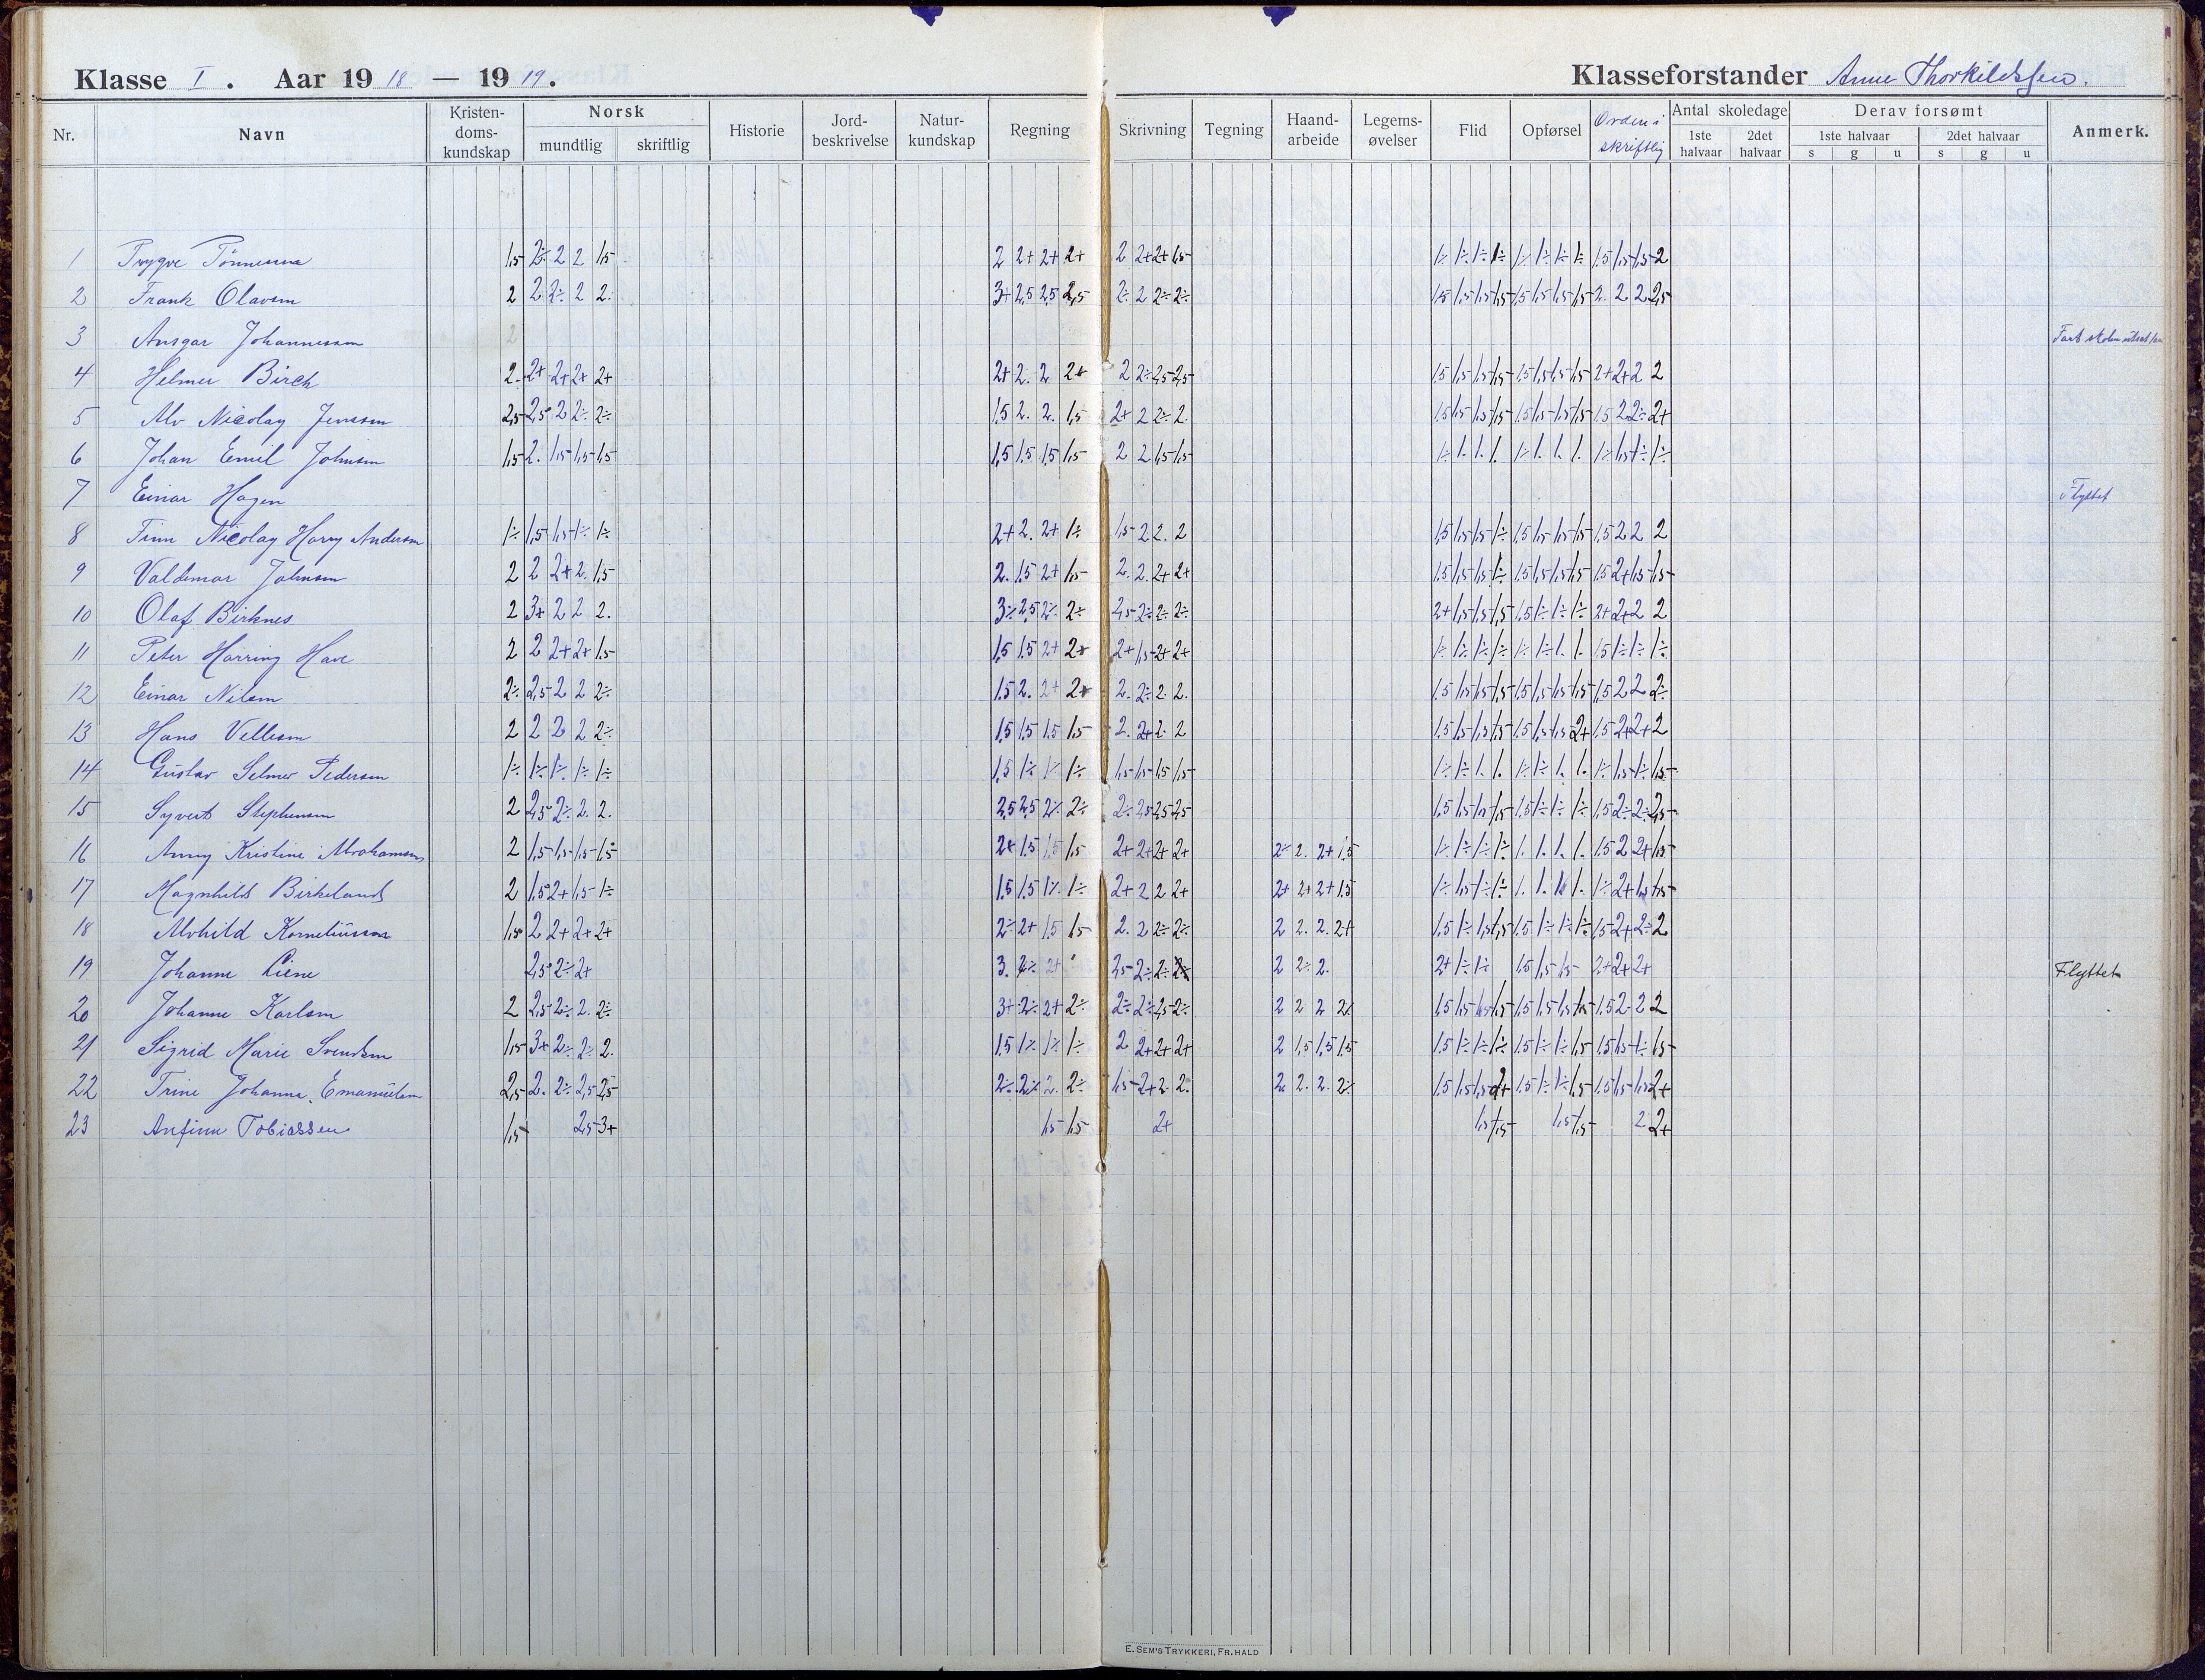 Klasse I. Aar 1918 — 1919. Klasseforstander Anne Thorkildssen.
Nr. Navn Kristendoms-kundskap Norsk mundtlig skriftlig Historie Jord-beskrivelse Natur-kundskap Regning Skrivning Tegning Haand-arbeide Legems-øvelser Flid Opførsel Orden i skriftlig Antal skoledage 1ste halvaar 2det halvaar Derav forsømt 1ste halvaar s g u 2det halvaar s g u Anmerk.
1 Trygve Tönnessen 1,5 2÷ 2 2 1,5 2 2+ 2+ 2+ 2 2+ 2+ 1,5 1÷ 1÷ 1÷ 1÷ 1÷ 1÷ 1÷ 1÷ 1,5 1,5 1,5 2
2 Frank Olavsen 2 2 2÷ 2 2. 3+ 2,5 2,5 2,5 2÷ 2 2÷ 2÷ 1,5 1,5 1,5 1,5 1,5 1,5 1,5 1,5 2. 2 2 2,5
3 Ansgar Johannessen
4 Helmer Birch 2 2+ 2+ 2+ 2+ 2+ 2. 2 2+ 2 2÷ 2,5 2,5 1,5 1,5 1,5 1,5 1,5 1,5 1,5 1,5 2+ 2+ 2 2
5 Alv Nicolay Jenssen 2,5 2,5 2 2÷ 2÷ 1,5 2. 2. 1,5 2+ 2 2÷ 2. 1,5 1,5 1,5 1,5 1,5 1,5 1,5 1,5 1,5 2 2÷ 2+
6 Johan Emil Johnsen 1,5 2. 1,5 1,5 1,5 1,5 1,5 1,5 1,5 2 2 1,5 1,5 1÷ 1. 1. 1. 1÷ 1. 1. 1. 1÷ 1,5 1÷ 1÷
7 Einar Hagen Flyttet
8 Finn Nicolay Harry Andersen 1÷ 1,5 1,5 1÷ 1÷ 2+ 2. 2+ 1÷ 1,5 2 2. 2 1,5 1,5 1,5 1÷ 1,5 1,5 1,5 1,5 1,5 2 2 2
9 Valdemar Johnsen 2 2 2+ 2. 1,5 2. 1,5 2+ 1,5 2. 2. 2+ 2+ 1,5 1,5 1,5 1÷ 1,5 1,5 1,5 1,5 1,5 2+ 1,5 1,5
10 Olaf Birknes 2 3+ 2 2 2. 3÷ 2,5 2÷ 2÷ 2,5 2÷ 2÷ 2÷ 2+ 1,5 1,5 1,5 1,5 1÷ 1÷ 1÷ 2+ 2+ 2 2
11 Peter Harring Have 2 2 2+ 2+ 1,5 1,5 1,5 2+ 2+ 2+ 1,5 2+ 2+ 1÷ 1÷ 1÷ 1÷ 1÷ 1÷ 1. 1. 1,5 1÷ 1÷ 1÷
12 Einar Nilsen 2÷ 2,5 2 2 2÷ 1,5 2. 2+ 2+ 2. 2÷ 2. 2. 1,5 1,5 1,5 1,5 1,5 1,5 1,5 1,5 1,5 2 2 2÷
13 Hans Vellesen 2 2 2 2 2÷ 1,5 1,5 1,5 1,5 2. 2+ 2. 2 1,5 1,5 1,5 1,5 1,5 1,5 1,5 2+ 1,5 2+ 2+ 2
14 Gustav Selmer Pedersen 1÷ 1÷ 1÷ 1÷ 1÷ 1,5 1÷ 1÷ 1÷ 1,5 1,5 1,5 1,5 1÷ 1÷ 1. 1. 1÷ 1÷ 1. 1. 1÷ 1,5 1÷ 1,5
15 Syvert Stephensen 2 2,5 2÷ 2. 2. 2,5 2,5 2÷ 2÷ 2÷ 2,5 2,5 2,5 1,5 1,5 1,5 1,5 1,5 1÷ 1÷ 1÷ 1,5 2÷ 2÷ 2,5
16 Anny Kristine Abrahamsen 2 1,5 1,5 1,5 1,5 2+ 1,5 1,5 1,5 2+ 2+ 2+ 2+ 2÷ 2. 2+ 1,5 1÷ 1÷ 1÷ 1÷ 1. 1. 1. 1. 1,5 2 2+ 1,5
17 Magnhild Birkeland 2 1,5 2+ 1,5 1÷ 1,5 1,5 1÷ 1÷ 2+ 2 2 2+ 2+ 2+ 2+ 1,5 1÷ 1,5 1÷ 1÷ 1. 1. 1. 1÷ 2+ 1,5 1,5
18 Alvhild Korneliussen 1,5 2 2+ 2+ 2+ 2÷ 2+ 1,5 1,5 2. 2 2÷ 2÷ 2 2. 2. 2+ 1,5 1÷ 1,5 1,5 1,5 1÷ 1÷ 1÷ 1,5 2+ 2÷ 2
19 Johanne Liene 2,5 2÷ 2+ 3. 2÷ 2+ 2,5 2÷ 2÷ 2 2÷ 2. 2+ 1÷ 1÷ 1,5 1,5 1,5 2+ 2+ 2+ Flyttet
20 Johanne Karlsen 2 2,5 2÷ 2. 2÷ 3+ 2÷ 2+ 2÷ 2÷ 2÷ 2,5 2÷ 2 2 2 2÷ 1,5 1,5 1,5 1,5 1,5 1,5 1,5 1,5 2 2 2
21 Sigrid Marie Svendsen 1,5 3+ 2÷ 2÷ 2. 1,5 1÷ 1÷ 1÷ 2 2+ 2+ 2+ 2 1,5 1,5 1,5 1,5 1÷ 1÷ 1÷ 1,5 1÷ 1÷ 1,5 1,5 1,5 1÷ 1,5
22 Trine Johanne Emanuelsen 2,5 2. 2÷ 2,5 2,5 2÷ 2÷ 2. 2÷ 1,5 2+ 2. 2. 2 2. 2. 2÷ 1,5 1,5 1,5 2+ 1,5 1÷ 1÷ 1,5 1,5 1,5 1,5 2+
23 Anfinn Tobiassen 1,5 2,5 3+ 1,5 1,5 2+ 1,5 1,5 1,5 1,5 2 2+
E. SEM'S TRYKKERI, FR.HALD